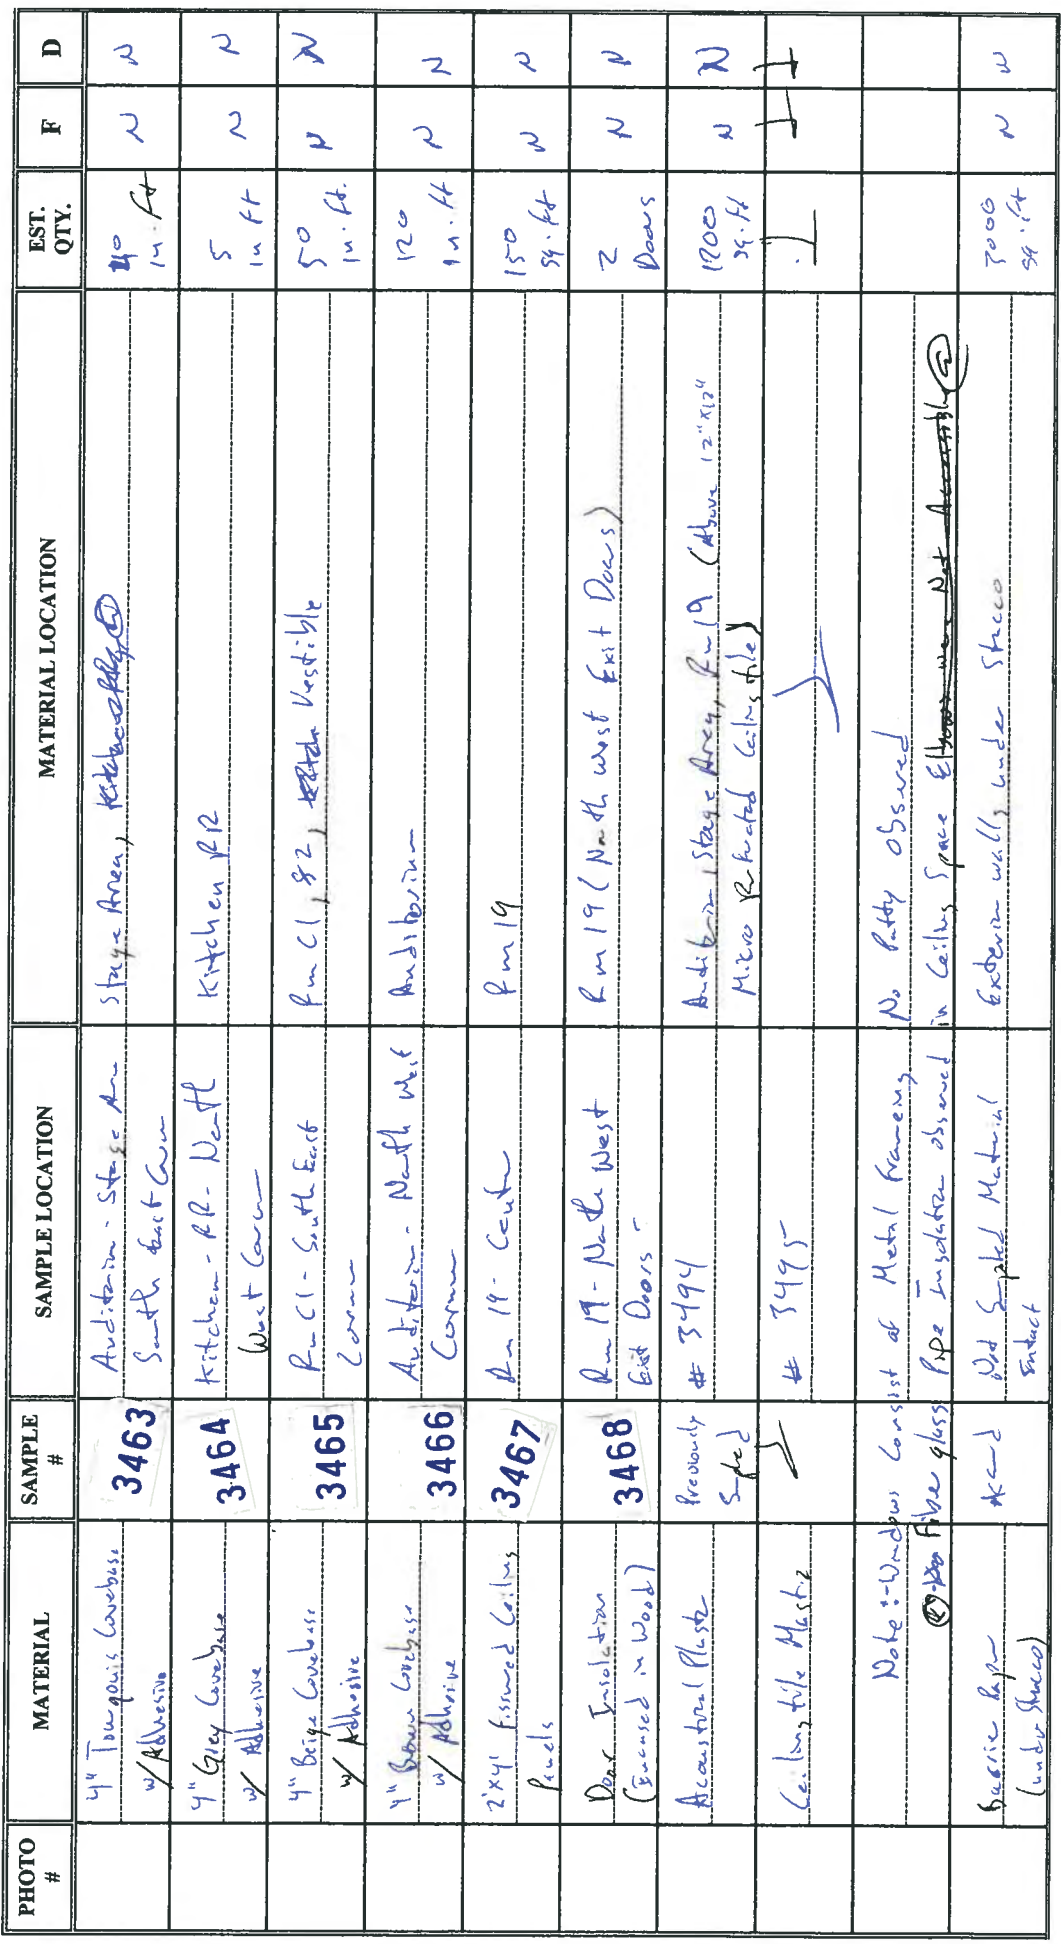 PHOTO #
MATERIAL
SAMPLE #
SAMPLE LOCATION
MATERIAL LOCATION
EST. QTY.
F
D
4" Tourquis Covebase
w/ Adhesive
3463
Auditorim - Stage Area
South East Corner
Stage Area,
40
ln. ft
N
N
4" Grey Covebase
w/ Adhesive
3464
Kitchen - RR - North
West Corner
Kitchen RR
5
ln ft
N
N
4" Beige Covebase
w/ Adhesive
3465
Rm C1 - South East
Corner
Rm C1, 82, Vestible
50
ln. ft.
N
N
4" Brown Covebase
w/ Adhesive
3466
Auditorim - North West
Corner
Auditorium
120
ln. ft
N
N
2'x4' Fissured Ceiling
Panels
3467
Rm 19 - Center
Rm 19
150
sq. ft
N
N
Door Insulation
(Encased in Wood)
3468
Rm 19 - North West
Exit Doors -
Rm 19 (North West Exit Doors)
2
Doors
N
N
Acoustical Plaster
Previously
Sampled
# 3494
Auditorim, Stage Area, Rm 19 (Above 12"x12"
Micro Perforated Ceiling tile)
1200
sq. ft
N
N
Ceiling tile Mastic
# 3495
Note :- Windows Consist of Metal Frameing, No Putty Observed
Fiber glass Pipe Insulation observed in Ceiling Space Elbows were Not Accessible
Barrie Paper
(under Stucco)
Not Sampled Material
Intact
Exterior walls under Stucco
sq. ft
N
N